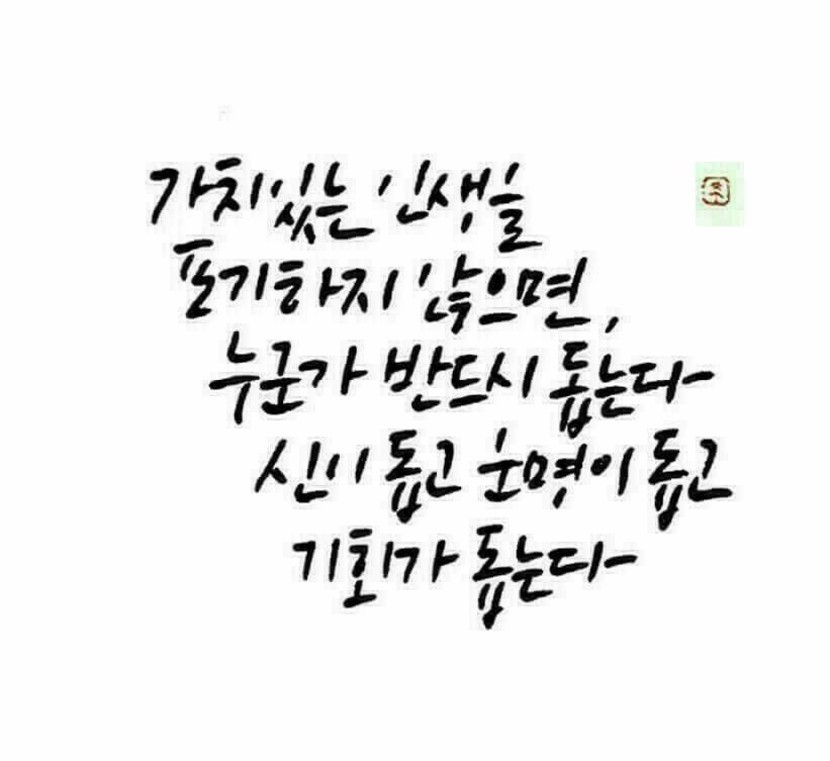 가치있는 인생을
포기하지 않으면,
누군가 반드시 돕는다
신이 돕고 운명이 돕고
기회가 돕는다